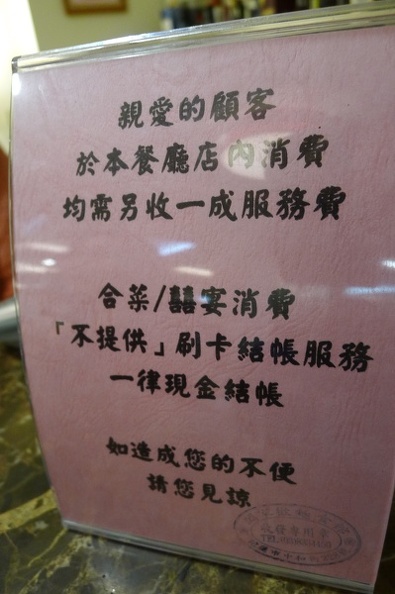 親愛的顧客
於本餐廳店內消費
均需另收一成服務費
合菜/囍宴消費
「不提供」刷卡結帳服務
一律現金結帳
如造成您的不便
請您見諒